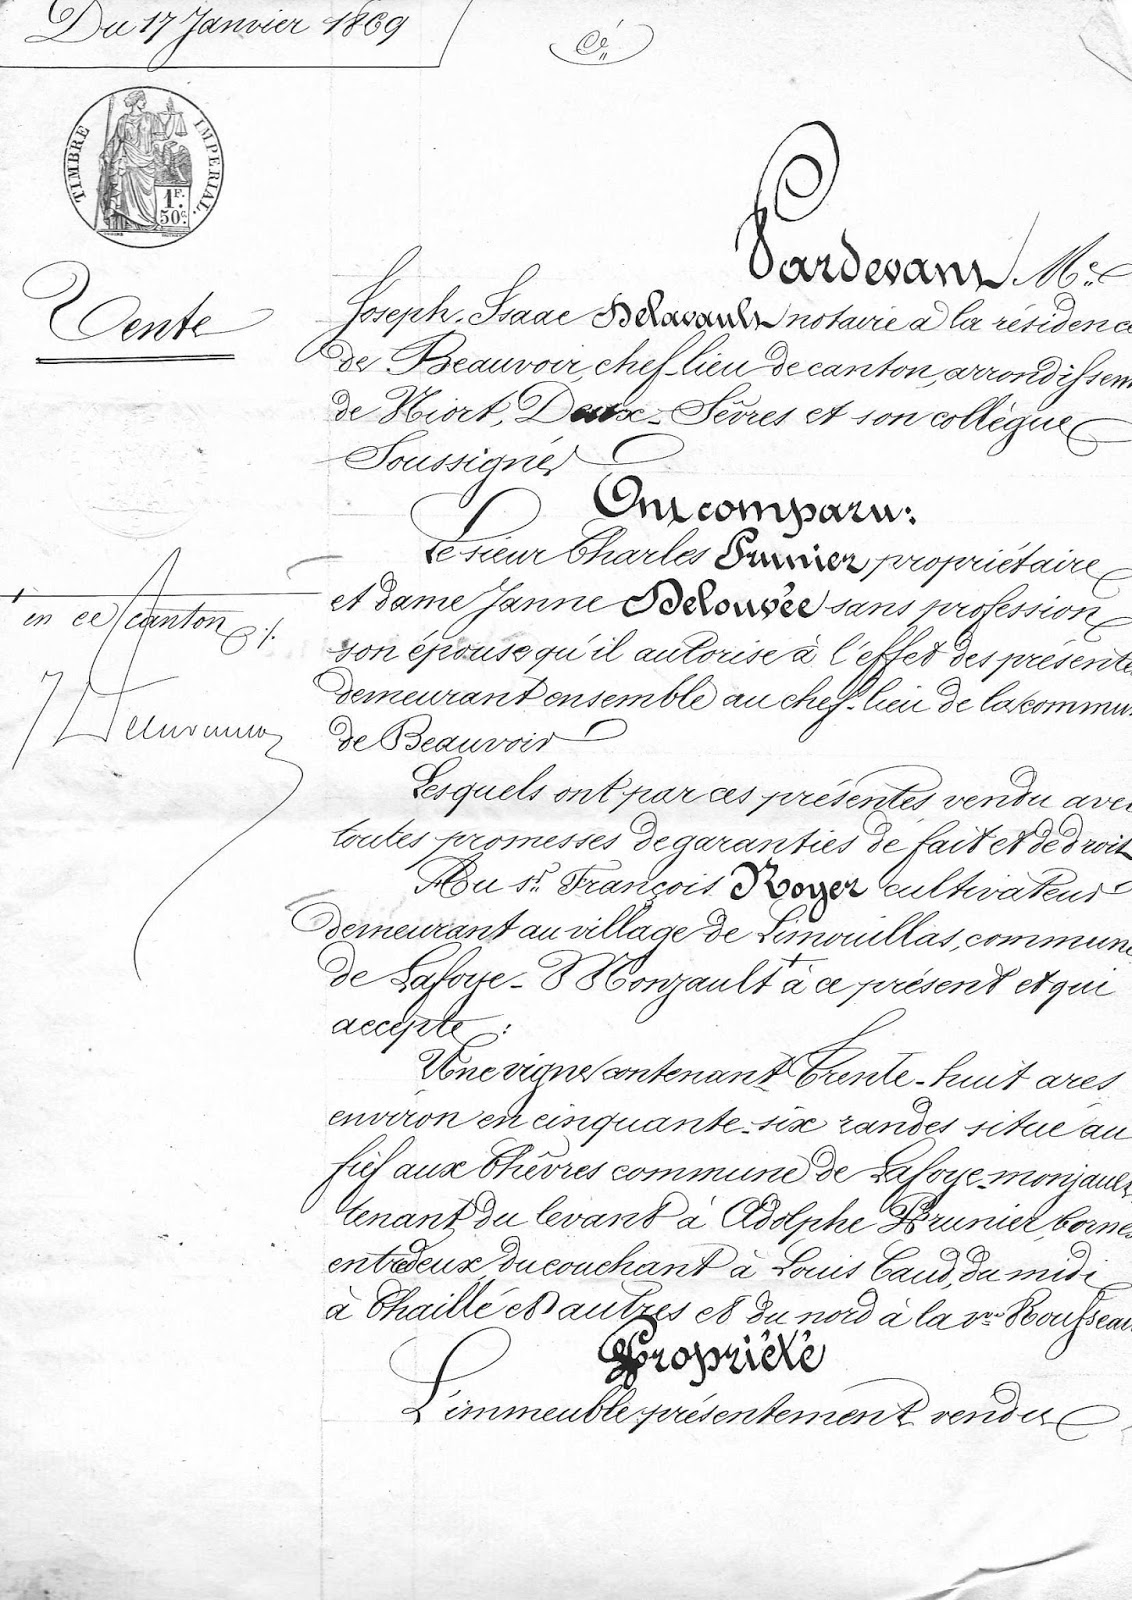 Du 17 Janvier 1869
TIMBRE IMPÉRIAL
1F.
50c.
Vente
Pardevant Me
Joseph-Isaac Delavault notaire à la résidence
de Beauvoir, chef-lieu de canton, arrondissem
de Niort, Deux-Sèvres et son collègue
Soussignés
Ont comparu:
Le sieur Charles Prunier propriétaire
et dame Janne Delouvée sans profession
son épouse qu'il autorise à l'effet des présente
demeurant ensemble au chef-lieu de la commu
de Beauvoir
Lesquels ont par ces présentes vendu avec
toutes promesses de garanties de fait et de droit
Au sr. François Royer cultivateur
demeurant au village de Limouillas, commune
de Lafoye-Monjault à ce présent et qui
accepte:
Une vigne contenant Trente-huit ares
environ en cinquante-six randes situé au
fief aux Chèvres commune de Lafoye-monjault,
tenant du levant à Adolphe Prunier, bornes
entredeux, du couchant à Louis Caud, du midi
à Chaillé et autres et du nord à la vve Rousseau
Propriété
L'immeuble présentement vendu
en ce canton